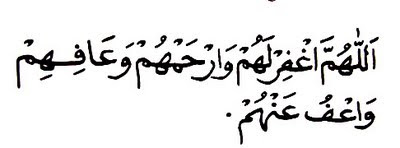 اَللّٰهُمَّ اغْفِرْلَهُمْ وَارْحَمْهُمْ وَعَافِهِمْ
وَاعْفُ عَنْهُمْ.